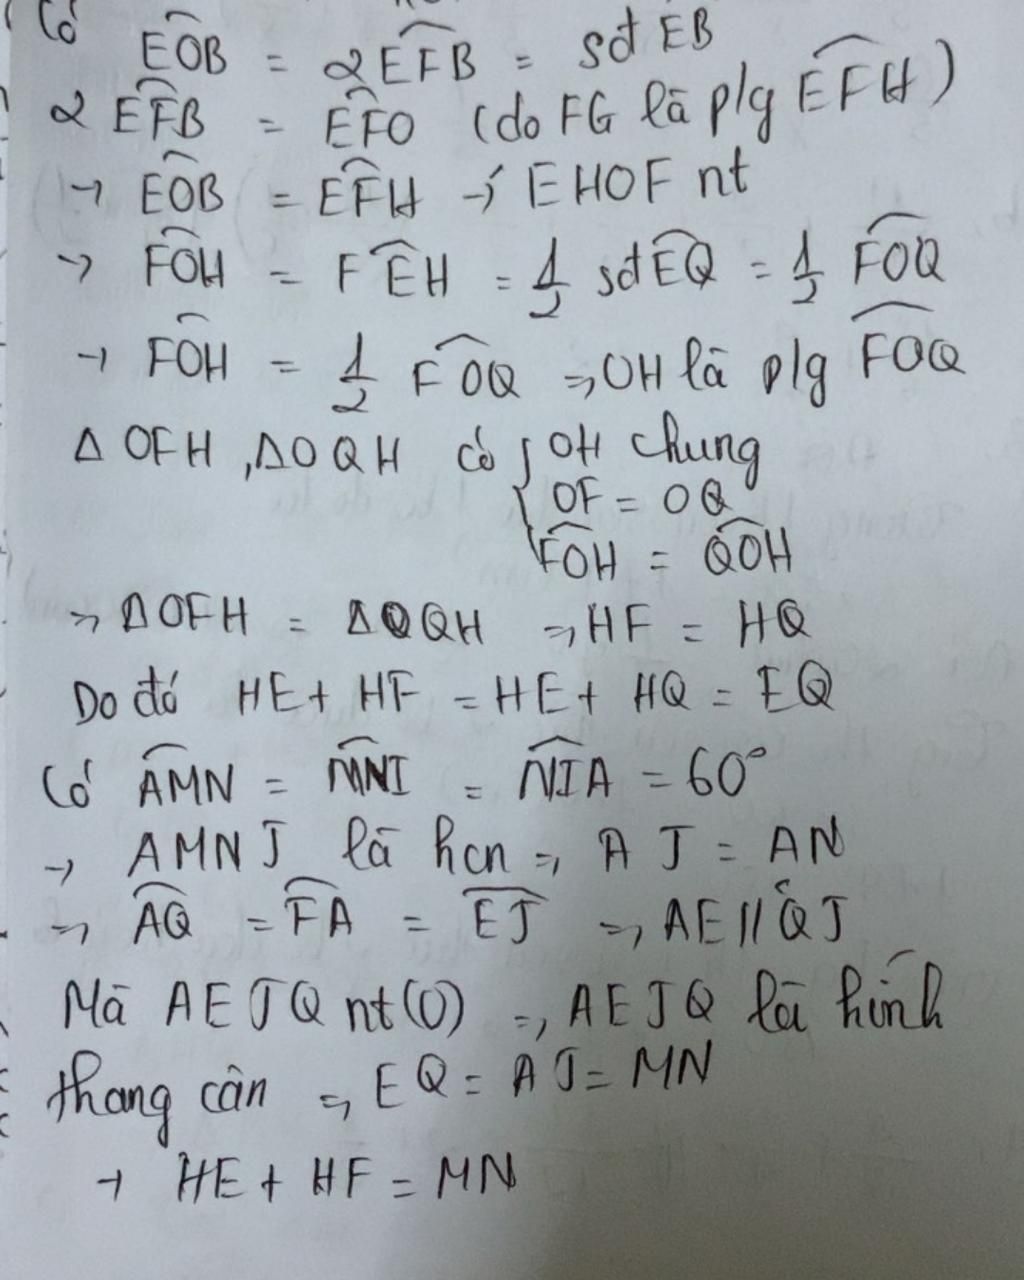 Có
EOB = 2EFB = sđ EB
2 EFB = EFO (do FG là p/g EFH)
→ EOB = EFH → EHOF nt
→ FOH = FEH = 1/2 sđ EQ = 1/2 FOQ
→ FOH = 1/2 FOQ => OH là p/g FOQ
Δ OFH, Δ OQH có { OH chung
OF = OQ
FOH = QOH
=> Δ OFH = Δ OQH => HF = HQ
Do đó HE + HF = HE + HQ = EQ
Có AMN = MNI = NIA = 60°
→ AMNJ là hcn => AJ = AN
=> AQ = FA = EJ => AE // QJ
Mà AEJQ nt (O) => AEJQ là hình
thang cân => EQ = AJ = MN
→ HE + HF = MN